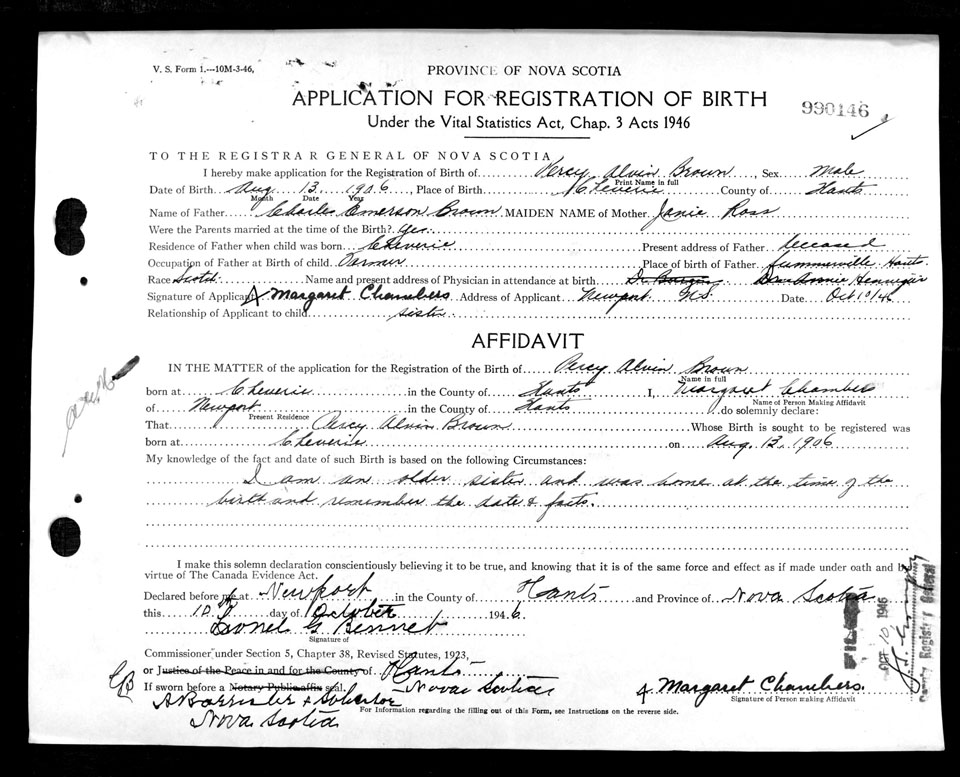 V. S. Form 1.—10M-3-46,
PROVINCE OF NOVA SCOTIA
APPLICATION FOR REGISTRATION OF BIRTH
990146
Under the Vital Statistics Act, Chap. 3 Acts 1946
TO THE REGISTRAR GENERAL OF NOVA SCOTIA
I hereby make application for the Registration of Birth of Percy Alvin Brown, Sex Male
Print Name in full
Date of Birth Aug 13 1906, Place of Birth Cheverie County of Hants
Month Date Year
Name of Father Charles Emerson Brown MAIDEN NAME of Mother Janie Ross
Were the Parents married at the time of the Birth? Yes.
Residence of Father when child was born Cheverie Present address of Father Deceased
Occupation of Father at Birth of child Farmer Place of birth of Father Summerville Hants.
Race Scotch Name and present address of Physician in attendance at birth
Signature of Applicant Margaret Chambers Address of Applicant Newport N.S. Date Oct 10/46
Relationship of Applicant to child sister
AFFIDAVIT
IN THE MATTER of the application for the Registration of the Birth of Percy Alvin Brown
Name in full
born at Cheverie in the County of Hants I, Margaret Chambers
Name of Person Making Affidavit
of Newport in the County of Hants do solemnly declare:
Present Residence
That Percy Alvin Brown Whose Birth is sought to be registered was
born at Cheverie on Aug. 13, 1906
My knowledge of the fact and date of such Birth is based on the following Circumstances:
I am an older sister and was home at the time of the
birth and remember the date & facts.
I make this solemn declaration conscientiously believing it to be true, and knowing that it is of the same force and effect as if made under oath and by
virtue of The Canada Evidence Act.
Declared before me at Newport in the County of Hants and Province of Nova Scotia
this 10th day of October 1946.
Lionel G. Bennet
Signature of
Commissioner under Section 5, Chapter 38, Revised Statutes, 1923,
or Justice of the Peace in and for the County of Hants
If sworn before a Notary Public affix seal. Nova Scotia
A Barrister & Solicitor
Nova Scotia
Margaret Chambers.
Signature of Person making Affidavit
For Information regarding the filling out of this Form, see Instructions on the reverse side.
FILED
OCT 10 1946
Deputy Registrar General